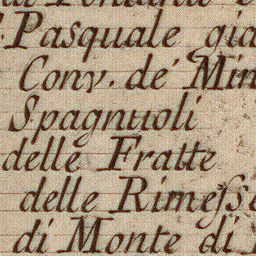 Pasquale già
Conv. de' Min
Spagnuoli
delle Fratte
delle Rimesse
di Monte di